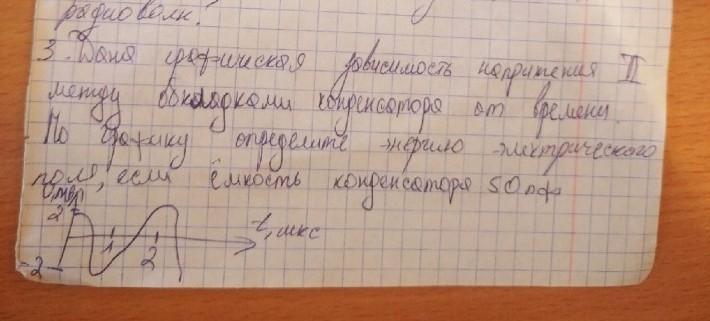 радиоволн?
3. Дана графическая зависимость напряжения II
между обкладками конденсатора от времени.
По графику определите энергию электрического
поля, если ёмкость конденсатора 50 пФ
2
1 2 t, мкс
-2